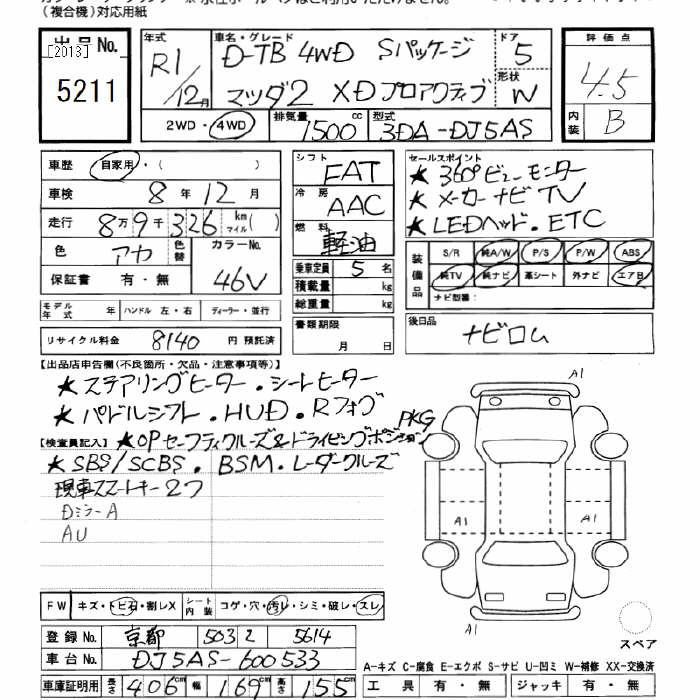 (複合機)対応用紙
出品No.
[2013]
5211
年式 R1/12月
車名・グレード D-TB 4WD Sパッケージ
マツダ2 XDプロアクティブ
ドア 5
形状 W
2WD・4WD
排気量 1500cc
型式 3DA-DJ5AS
評価点 4.5
内装 B
車歴 自家用・( )
車検 8年12月
走行 8万9千326km マイル( )
色 アカ 色替 カラーNo. 46V
保証書 有・無
モデル年式 年 ハンドル 左・右 ディーラー・並行
リサイクル料金 8140 円 預託済
シフト FAT
冷房 AAC
燃料 軽油
乗車定員 5名
積載量 kg
総重量 kg
書類期限
月 日
セールスポイント
★ 360°ビューモニター
★ メーカーナビTV
★ LEDヘッド・ETC
装備品 S/R 純A/W P/S P/W ABS
純TV 純ナビ 革シート 外ナビ エアB
ナビ型番:
後日品 ナビロム
【出品店申告欄(不良箇所・欠品・注意事項等)】
★ステアリングヒーター・シートヒーター
★パドルシフト・HUD・Rフォグ
【検査員記入】★OPセーフティクルーズ&ドライビングポジションPKG
★SBS/SCBS・BSM・レーダークルーズ
現車スマートキー2つ
DミラーA
AU
A1
A1
A1
A1
FW キズ・トビ石・割レX シート内装 コゲ・穴・汚レ・シミ・破レ・スレ
登録No. 京都 503 2 5614
車台No. DJ5AS-600533
車庫証明用 長さ 406cm 幅 169cm 高さ 155cm
スペア
A-キズ C-腐食 E-エクボ S-サビ U-凹ミ W-補修 XX-交換済
工具 有・無 ジャッキ 有・無